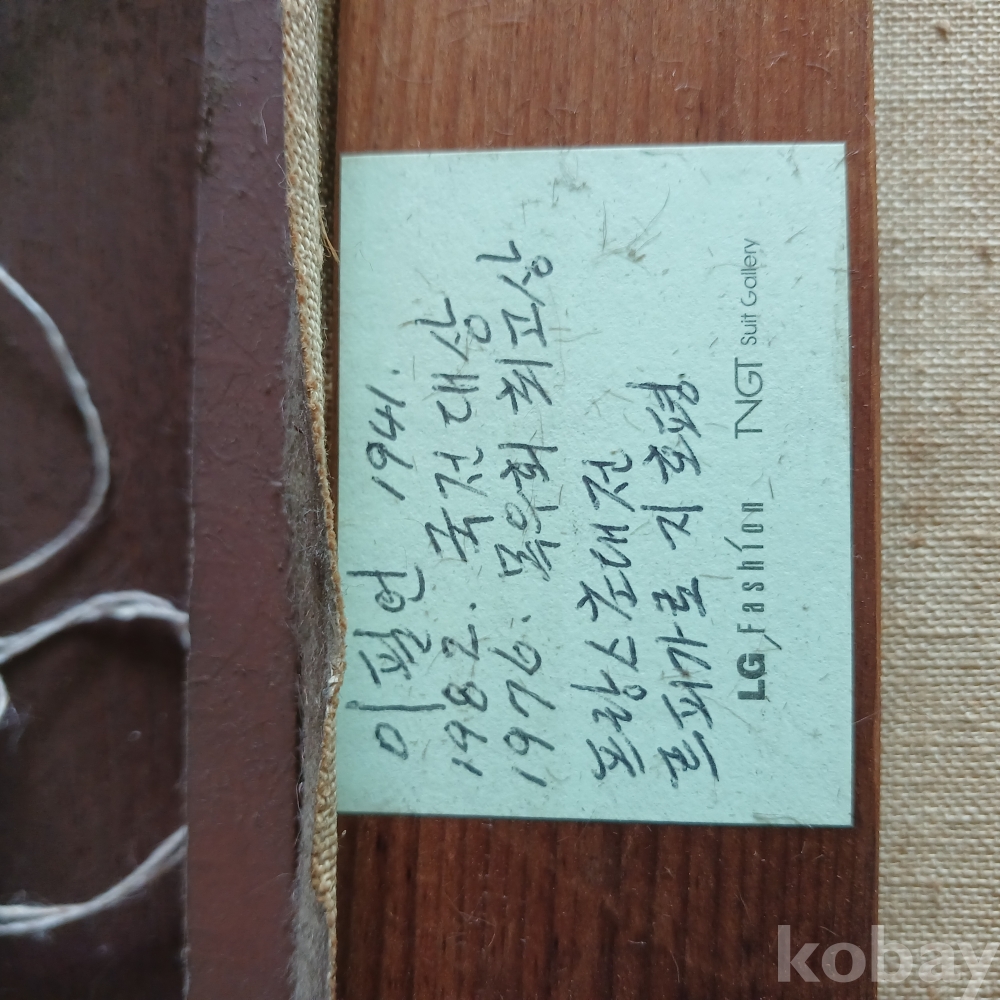 이필언 1941.
1982. 국전대상
1976. 목우회 최고상
프랑스초대전
르피가로지호평.
LG Fashion TNGT Suit Gallery
kobay